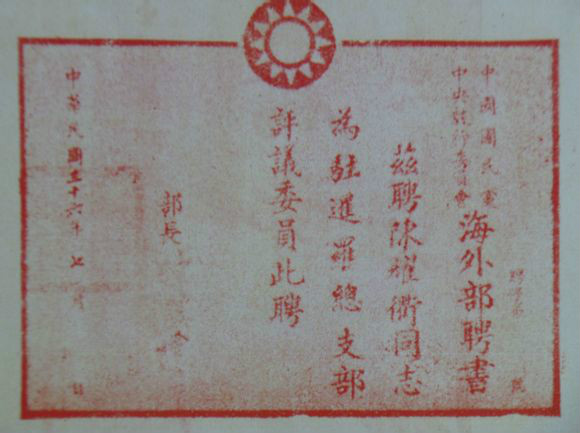 聘字第 號
中國國民黨
中央執行委員會
海外部聘書
茲聘陳耀衢同志
為駐暹羅總支部
評議委員此聘
部長
中華民國三十六年七月 日